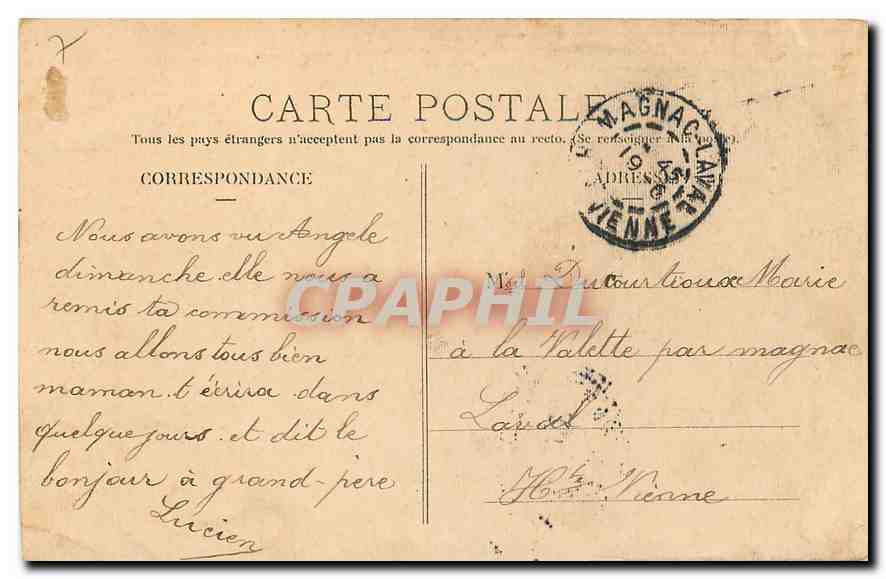 CARTE POSTALE
Tous les pays étrangers n'acceptent pas la correspondance au recto. (Se renseigner à la poste).
CORRESPONDANCE
ADRESSE
MAGNAC-LAVAL
VIENNE
Nous avons vu Angele
dimanche elle nous a
remis ta commission
nous allons tous bien
maman t'écrira dans
quelque jours. et dit le
bonjour à grand-père
Lucien
Melle Ducourtioux Marie
à la Valette par magnac
Laval
Hte Vienne
CPAPHIL